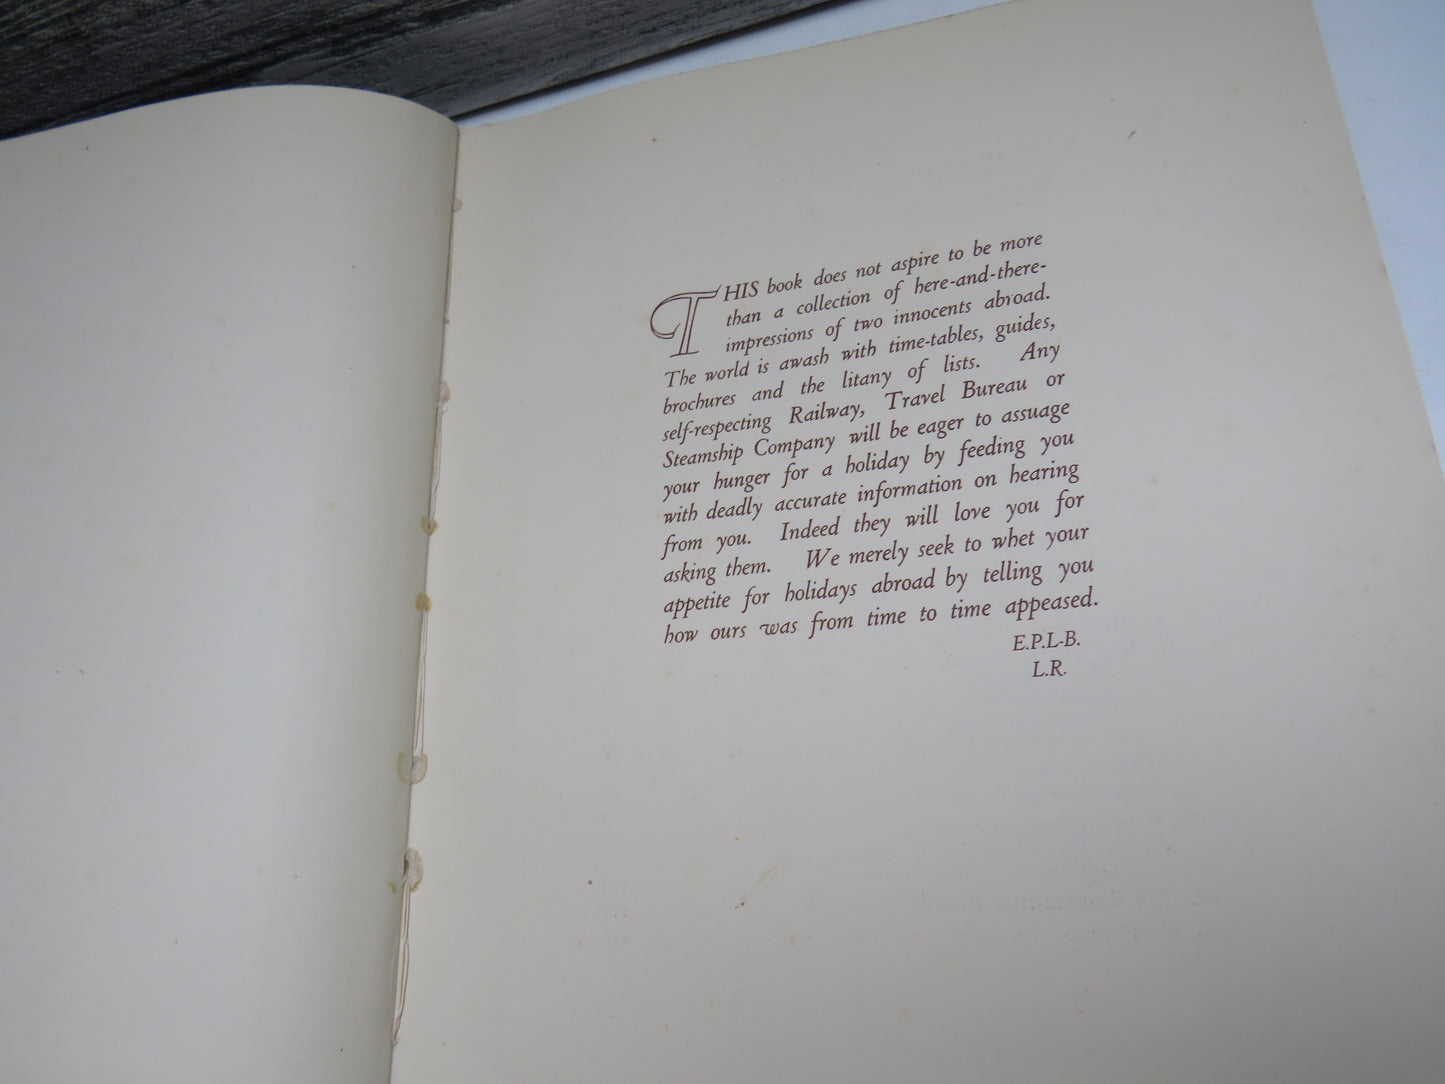 THIS book does not aspire to be more
than a collection of here-and-there-
impressions of two innocents abroad.
The world is awash with time-tables, guides,
brochures and the litany of lists. Any
self-respecting Railway, Travel Bureau or
Steamship Company will be eager to assuage
your hunger for a holiday by feeding you
with deadly accurate information on hearing
from you. Indeed they will love you for
asking them. We merely seek to whet your
appetite for holidays abroad by telling you
how ours was from time to time appeased.
E.P.L-B.
L.R.